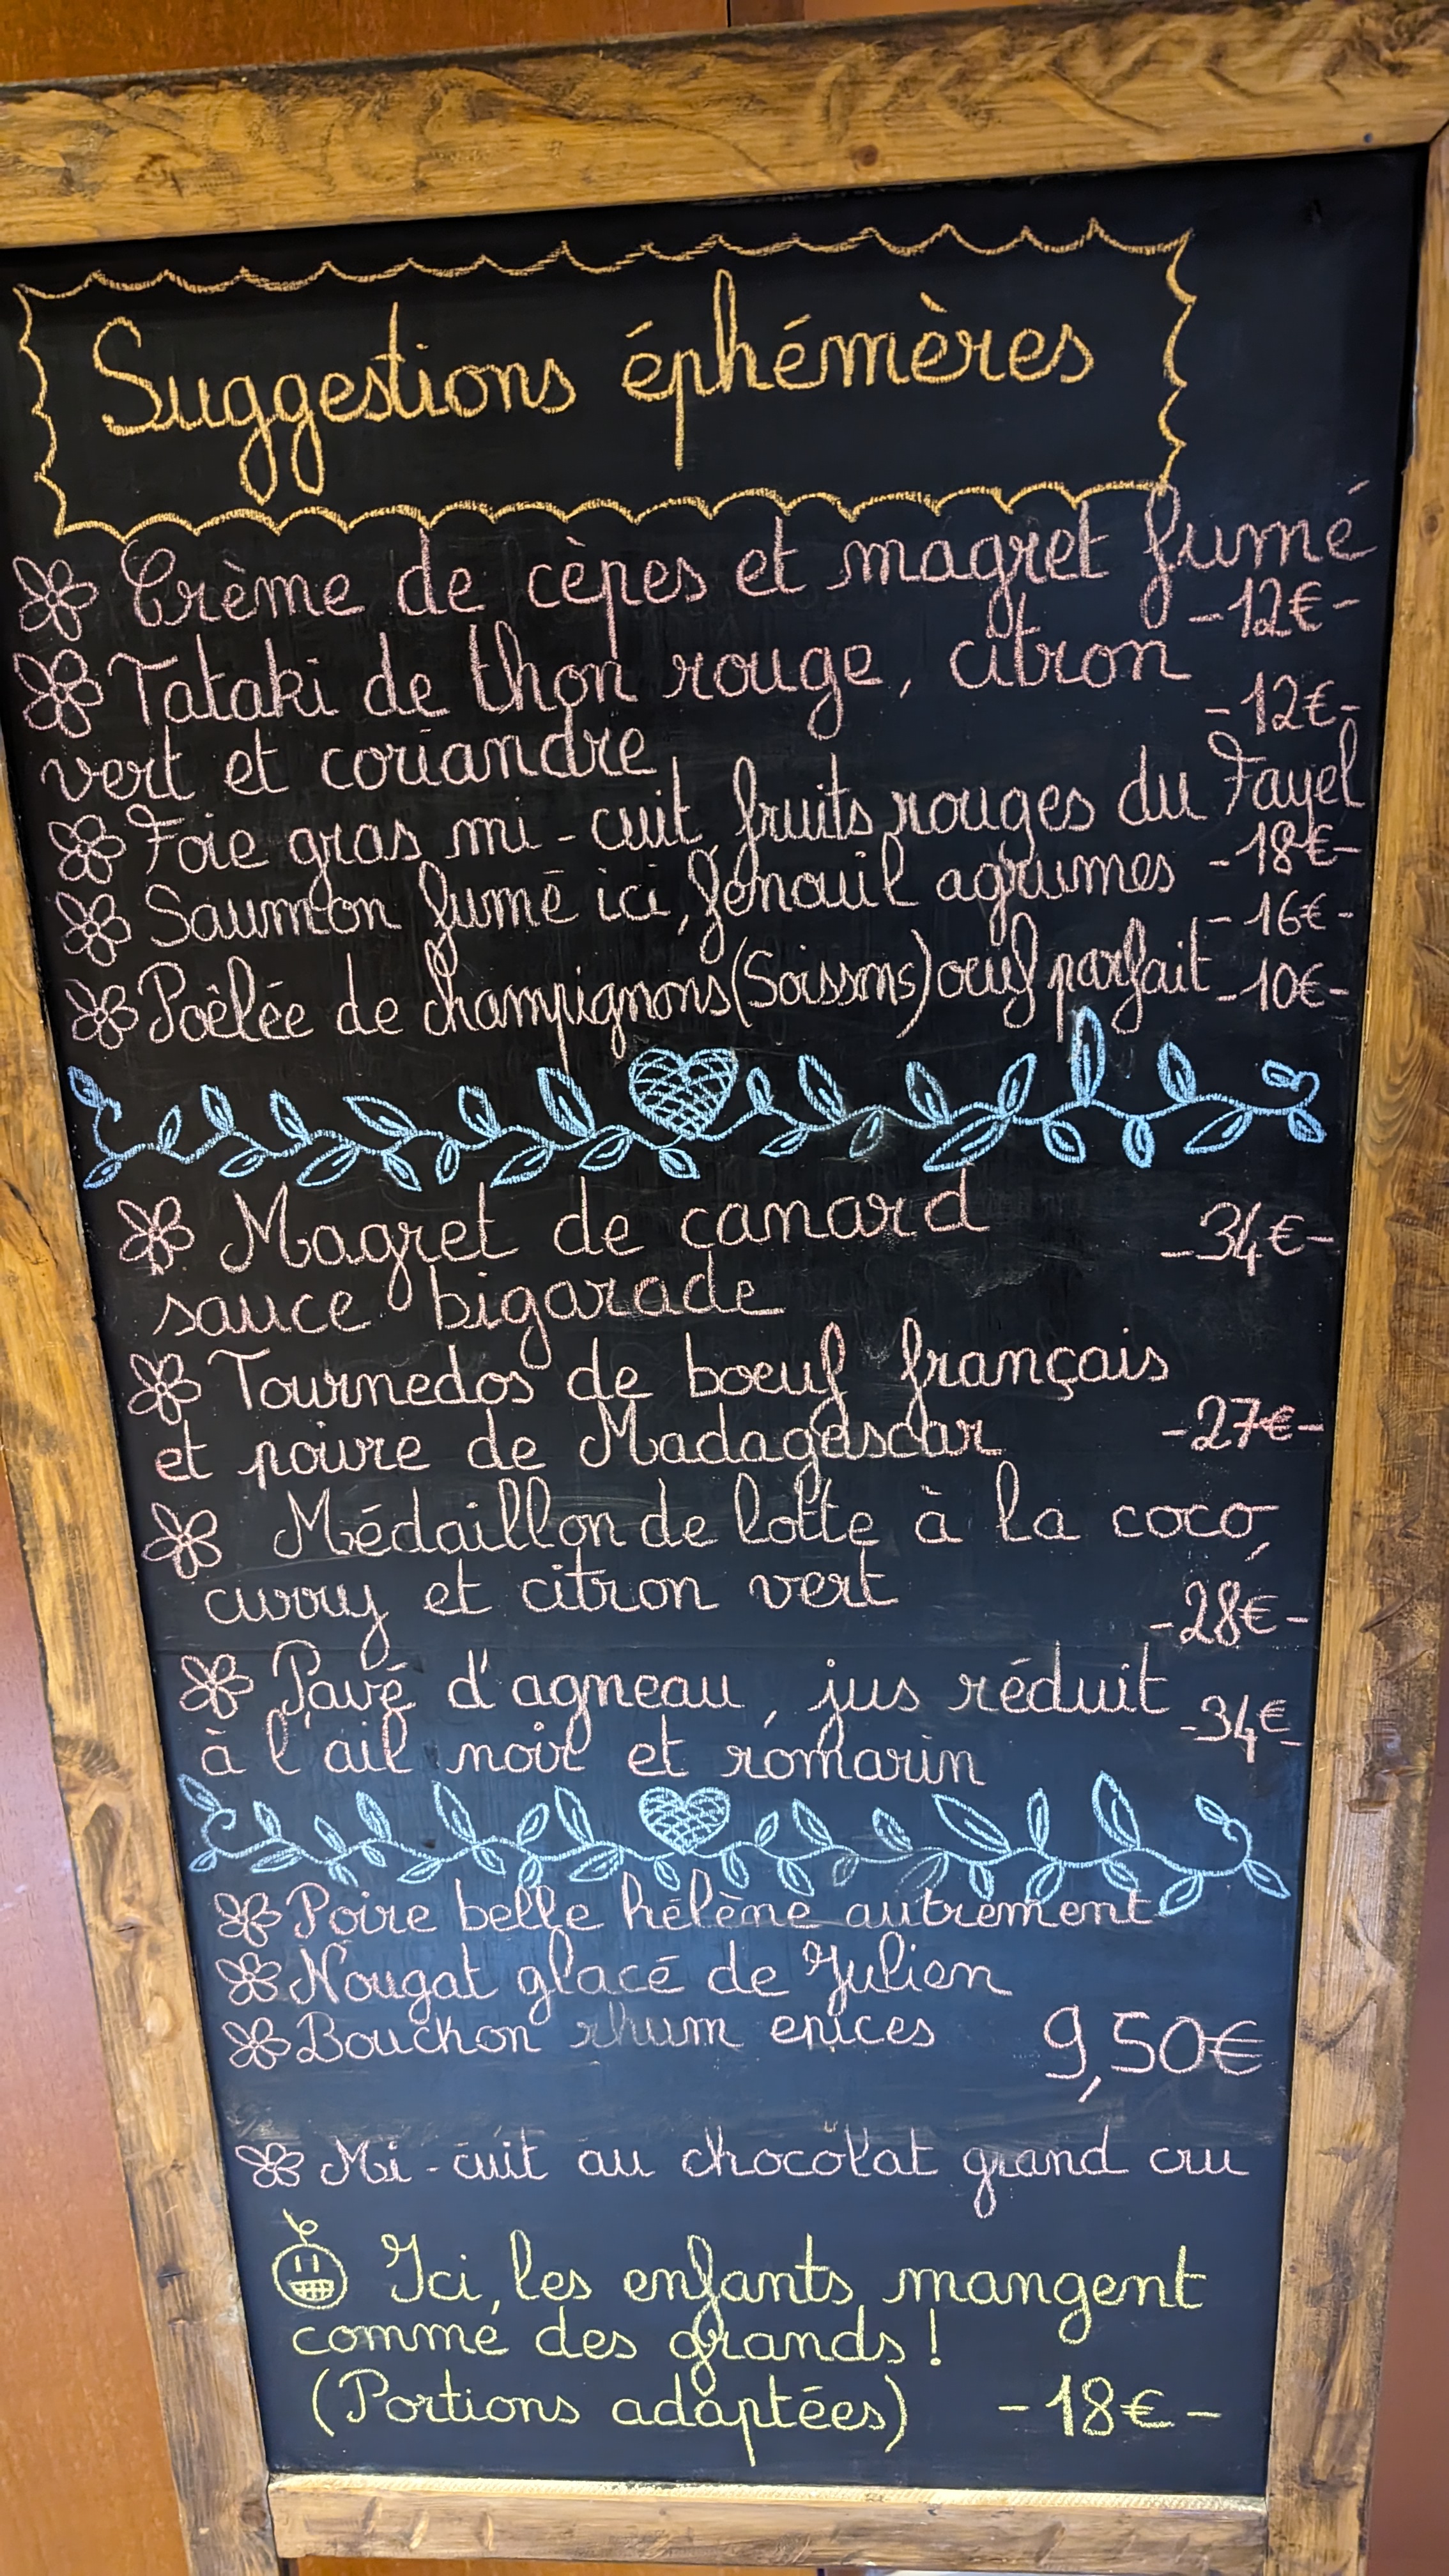 Suggestions éphémères
Crème de cèpes et magret fumé
-12€-
Tataki de thon rouge, citron
-12€-
vert et coriandre
Foie gras mi-cuit, fruits rouges du Fayel
-18€-
Saumon fumé ici, fenouil agrumes
-16€-
Poêlée de champignons (Soissons) oeuf parfait -10€-
Magret de canard -34€-
sauce bigarade
Tournedos de boeuf français
et poivre de Madagascar -27€-
Médaillon de lotte à la coco,
curry et citron vert
-28€-
Pavé d'agneau, jus réduit -34€-
à l'ail noir et romarin
Poire belle hélène autrement
Nougat glacé de Julien
Bouchon rhum epices 9,50€
Mi-cuit au chocolat grand cru
Ici, les enfants mangent
comme des grands !
(Portions adaptées) -18€-